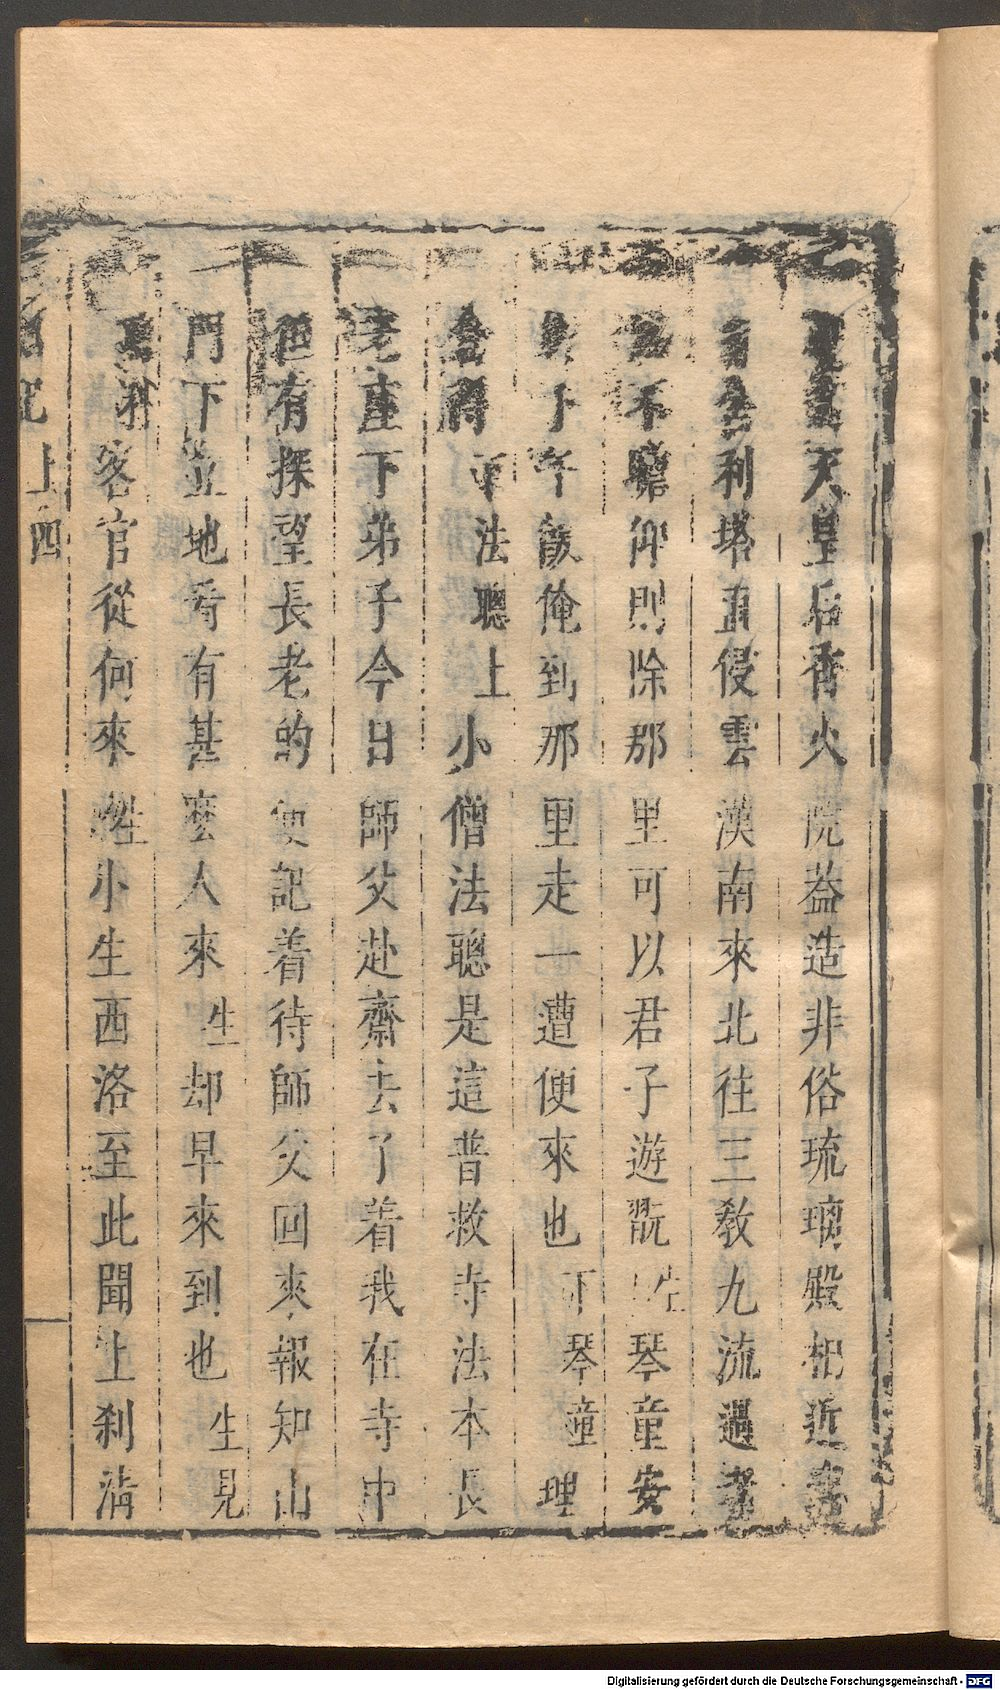 天皇后香火院葢造非俗琉璃殿相近
利塔直侵雲漢南來北往三敎九流過者
不瞻仰則除那里可以君子遊翫 生 琴童安
下午飯俺到那里走一遭便來也 下 琴童 理
會得 下 法聰上 小僧法聰是這普救寺法本長
老座下弟子今日師父赴齋去了着我在寺中
但有探望長老的便記着待師父回來報知山
門下立地看有甚麽人來 生 却早來到也 生見
客官從何來 生 小生西洛至此聞上刹淸
上 四
Digitalisierung gefördert durch die Deutsche Forschungsgemeinschaft - DFG